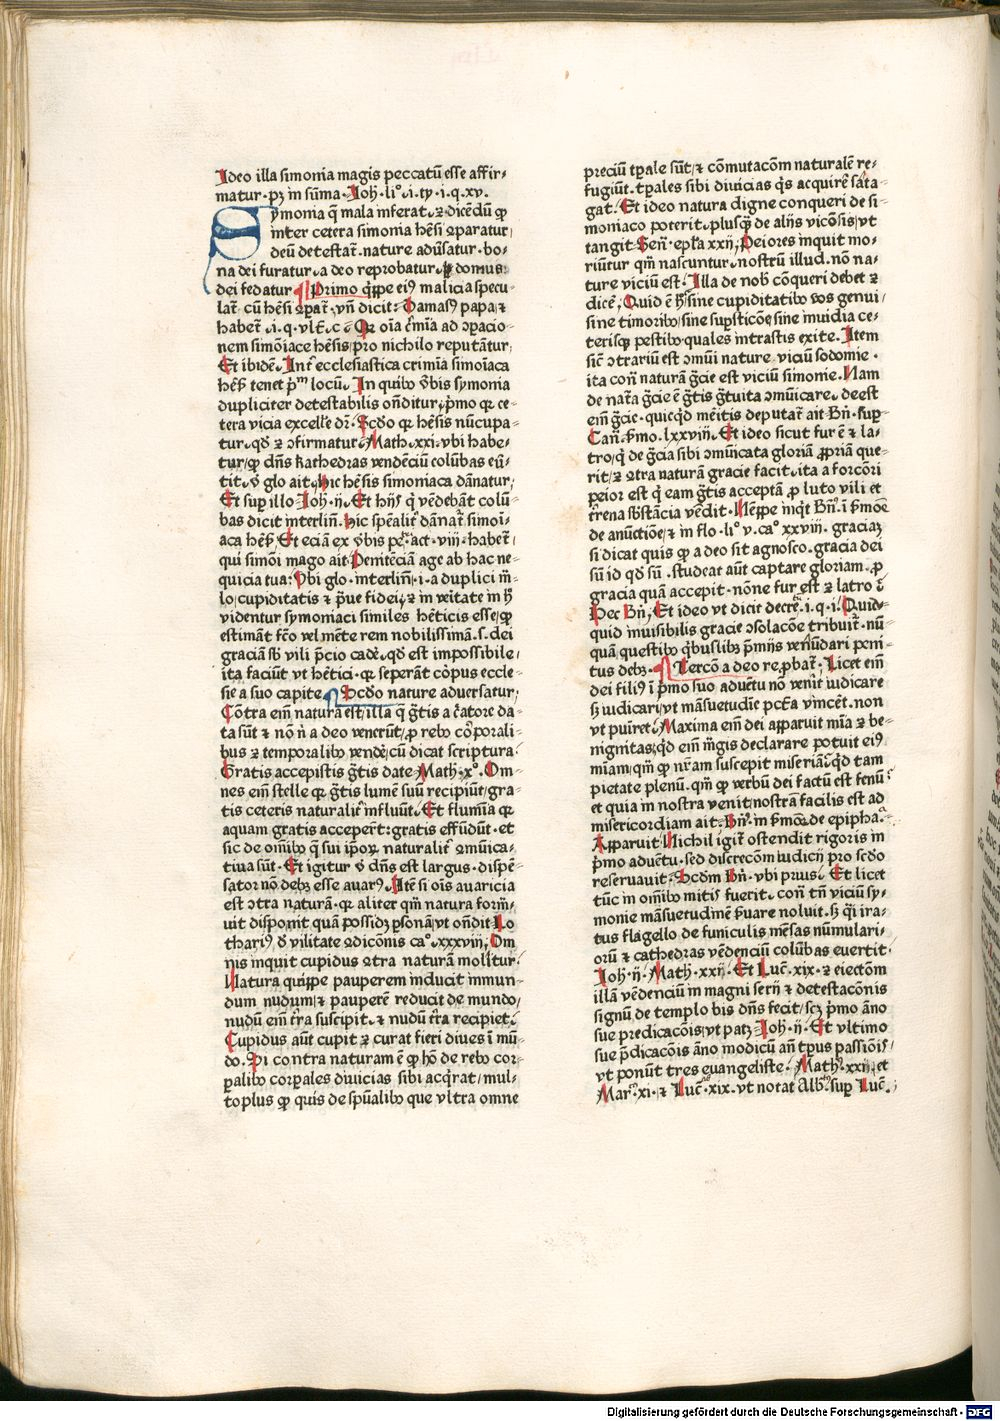 Ideo illa simonia magis peccatū esse affir⸗
matur·pꝫ in sūma·Ioħ·li°·i·ty·i·q·xv·
Symonia q̄ mala inferat·ꝛ dicēdū ꝙ
inter cetera simonia hēsi ꝯparatur
deū detestat̄·nature adūsatur·bo⸗
na dei furatur·a deo reprobatur·ꝑ domus
dei fedatur Primo q̄ppe eiꝰ malicia specu⸗
lat̄·cū hēsi ꝯpat̄·vn̄ dicit·Damasꝰ papa ⁊
habet̄·i·q·vlt̄·c· Qꝛ oīa cīmīa ad ꝯpacio⸗
nem simōiace hēsis pro nichilo reputātur
Et ibidē·Int̄ ecclesiastica crimīa simoīaca
hēs̄ tenet pᵐ locū·In quibꝰ v̄bis symonia
dupliciter detestabilis on̄ditur·pͥmo qꝛ ce⸗
tera vicia excell̄e dꝛ·Scd̄o qꝛ hēsis nūcupa⸗
tur·qd̄ ꝛ ꝯfirmatur·Math·xxi·vbi habe⸗
tur·ꝙ dn̄s kathedras vendēciū colūbas eū⸗
tit·v̄ glo ait·hic hēsis simoniaca dānatur·
Et sup illo·Ioħ·ij·Et hn̄s q̄ vēdebāt colū⸗
bas dicit interlin̄·hic spēalit̄ dānat̄ simoī⸗
aca hēs̄·Et eciā ex v̄bis pe·act·viij·habet̄
qui simōi mago ait·Penitēciā age ab hac ne⸗
quicia tua·Vbi glo·interlin̄·i·a duplici m̄⸗
lo cupiditatis ⁊ pͣue fidei·ꝛ in v̄itate in h̄
videntur symoniaci similes hēticis esse·ꝙ
estimāt fco vel mēte rem nobilissimā·s·dei
graciā sb̄ vili p̄cio cadē·qd̄ est impossibile
ita faciūt vt hētici·qꝛ seperāt cōpus eccle⸗
sie a suo capite Scd̄o nature aduersatur·
Cōtra em̄ naturā est illa q̄ g̃tis a cͤatore da⸗
ta sūt ⁊ nō n̄ a deo vencrūt·ꝓ rebꝰ corporali⸗
bus ꝛ temporalibꝰ vendē·cū dicat scriptura·
Gratis accepistis g̃tis date·Math·x°·Om⸗
nes em̄ stelle qꝛ g̃tis lumē suū recipiūt·gra⸗
tis ceteris naturalit̄ influūt·Et flumīa qꝛ
aquam gratis acceper̄t·gratis effūdūt·et
sic de om̄ibꝰ q̄ sui ipoꝝ naturalit̄ ꝯmūica⸗
tiua sūt·Et igitur v̄ dn̄s est largus·dispē⸗
sator nō debꝫ esse auarꝰ·Itē si oīs auaricia
est ꝯtra naturā·qꝛ aliter qm̄ natura form̄⸗
uit disponit quā possidꝫ psonā·vt on̄dit Lo
thariꝰ d̄ vilitate ꝯdicōnis ca°·xxxviij·Om
nis inquit cupidus ꝯtra naturā molitur·
Natura quippe pauperem inducit in mun⸗
dum nudum·⁊ pauperē reducit de mundo
nudū em̄ t̄ra suscipit·⁊ nudū t̄ra recipiet·
Cupidus aūt cupit ꝛ curat fieri diues ī mū⸗
do·Si contra naturam ē ꝙ hō de rebꝰ cor⸗
ꝑalibꝰ corꝑales diuicias sibi acq̄rat·mul⸗
toplus ꝙ quis de sp̄ualibꝰ que vltra omne
preciū tꝑale sūt·⁊ cōmutacōm naturalē re⸗
fugiūt·tꝑales sibi diuicias qͥs acquirē sata⸗
gat·Et ideo natura digne conqueri de si⸗
moniaco poterit·plusqꝫ de alijs vicōsis·vt
tangit·Sen̄·ep̄la xxij·Peiores inquit mo⸗
riūtur qm̄ nascuntur·nostrū illud·nō na⸗
ture viciū est·Illa de nob̄ cōqueri debet ꝛ
dicē·Quid ē h̄ sine cupiditatibꝰ vos genui
sine timoribꝰ sine supsticōe sine inuidia ce⸗
terisqꝫ pestibꝰ·quales intrastis exite·Item
sic̄ ꝯtrariū est ꝯmūi nature viciū sodomie·
ita con̄ naturā g̃cie est viciū simonie·Nam
de nat̄a g̃cie ē g̃tis g̃tuita ꝯmūicare·deest
em̄ g̃cie·quicqͥd mēitis deputat̄ ait Bn̄·sup
Can̄·ẜmo·lxxviij·Et ideo sicut fur ē ⁊ la⸗
tro·q̄ de g̃cia sibi ꝯmūicata gloriā ꝓpriā que⸗
rit·ꝛ ꝯtra naturā gracie facit·ita a forcōri
peior est q̄ eam g̃tis acceptā ꝓ luto vili et
t̄rena sb̄stācia vēdit·Nēpe inq̄t Bn̄·ī ẜmoē
de anūctiōe·⁊ in flo·li° v·ca° xxviij·graciaꝫ
si dicat quis ꝙ a deo sit agnosco·gracia dei
sū id qd̄ sū·studeat aūt captare gloriam·ꝓ
gracia quā accepit·nōne fur est ꝛ latro ē
Hec Bn̄·Et ideo vt dicit decre·i·q·i·Quid⸗
quid inuisibilis gracie ꝯsolacōe tribuit̄·nū⸗
quā questibꝰ qͥbuslibꝫ p̄mijs venūdari peni⸗
tus debꝫ· Tercō a deo reꝓbat̄·Licet em̄
dei filiꝰ ī pͥmo suo aduētu nō venit̄ iudicare
sꝫ iudicari·vt māsuetudīe pctā vīncet̄·non
vt puiret·Maxima em̄ dei apparuit mīa ꝛ be⸗
nignitas·qd̄ em̄ m̄gis declarare potuit eiꝰ
miam·qm̄ ꝙ nr̄am suscepit miseriā·qd̄ tam
pietate plenū·qm̄ ꝙ verbū dei factū est fenū
et quia in nostra venit·nostrā facilis est ad
misericordiam ait·Bn̄·in ẜmōe de epipha·
Apparuit Nichil igit̄ ostendit rigoris in
pͥmo aduētu·sed discrecōm iudicij pro scd̄o
reseruauit·Scd̄m Bn̄·vbi prius· Et licet
tūc in om̄ibꝰ mitis fuerit·con̄ tn̄ viciū sy⸗
monie māsuetudinē ẜuare noluit·sꝫ q̄i ira⸗
tus flagello de funiculis mēsas nūmulari⸗
orū ⁊ cathedras vēdenciū colūbas euertit·
Ioħ·ij·Math·xxij·Et Luc̄·xix·ꝛ eiectōm
illā vēdenciū in magni serij ⁊ detestacōnis
signū de templo bis dn̄s fecit·scꝫ pͥmo āno
sue predicacōis·vt patꝫ·Ioħ·ij·Et vltimo
sue p̄dicacōis āno modicū an̄ tp̄us passiōis
vt ponūt tres euangeliste·Math·xxij·et
Mar·xi·⁊ Luc̄·xix·vt notat Alb·sup Luc̄·
Digitalisierung gefördert durch die Deutsche Forschungsgemeinschaft - DFG